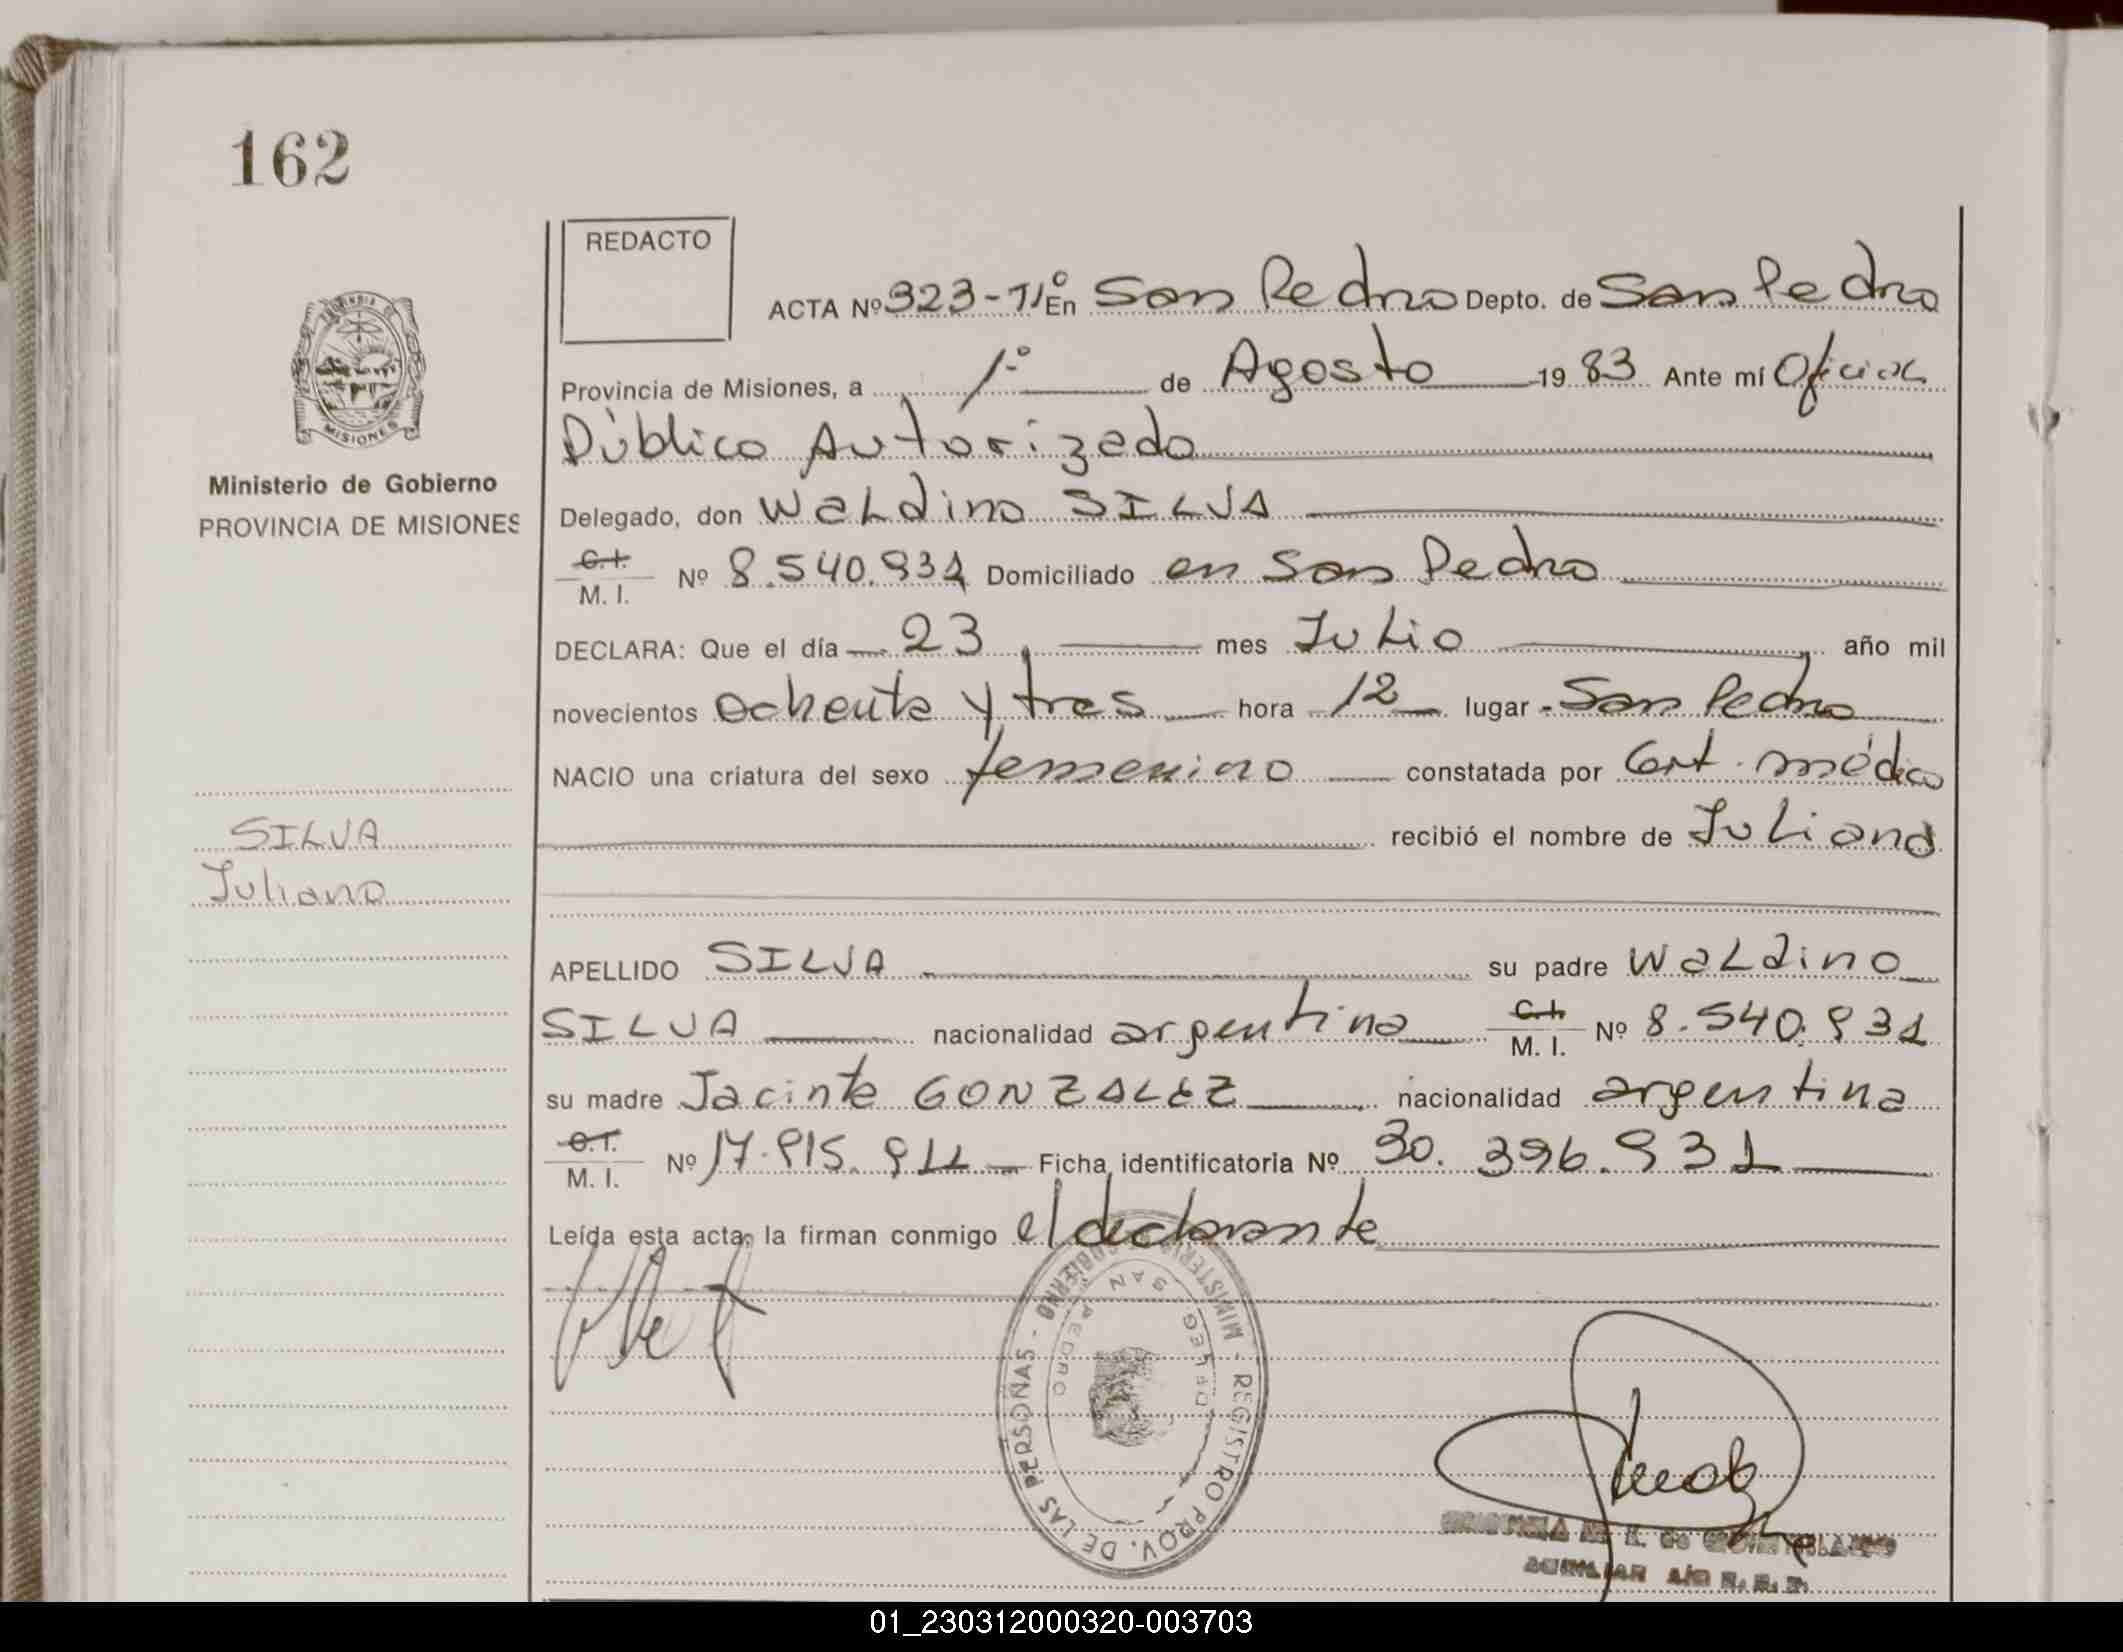 162
REDACTO
ACTA Nº 323-Tº En San Pedro Depto. de San Pedro
Provincia de Misiones, a 1º de Agosto 1983 Ante mí Oficial
Público Autorizado
Delegado, don Waldino SILVA
C.I. M. I. Nº 8.540.931 Domiciliado en San Pedro
DECLARA: Que el día 23 mes Julio año mil
novecientos ochenta y tres hora 12 lugar San Pedro
NACIO una criatura del sexo femenino constatada por Cert. médico
recibió el nombre de Juliana
APELLIDO SILVA su padre Waldino
SILVA nacionalidad argentina C.I. M. I. Nº 8.540.931
su madre Jacinta GONZALEZ nacionalidad argentina
C.I. M. I. Nº 17.915.911 Ficha identificatoria Nº 30.396.931
Leída esta acta, la firman conmigo el declarante
MISIONES
Ministerio de Gobierno
PROVINCIA DE MISIONES
SILVA
Juliana
MINISTERIO GOBIERNO - REGISTRO PROV. DE LAS PERSONAS -
SAN PEDRO
AUXILIAR
01_230312000320-003703